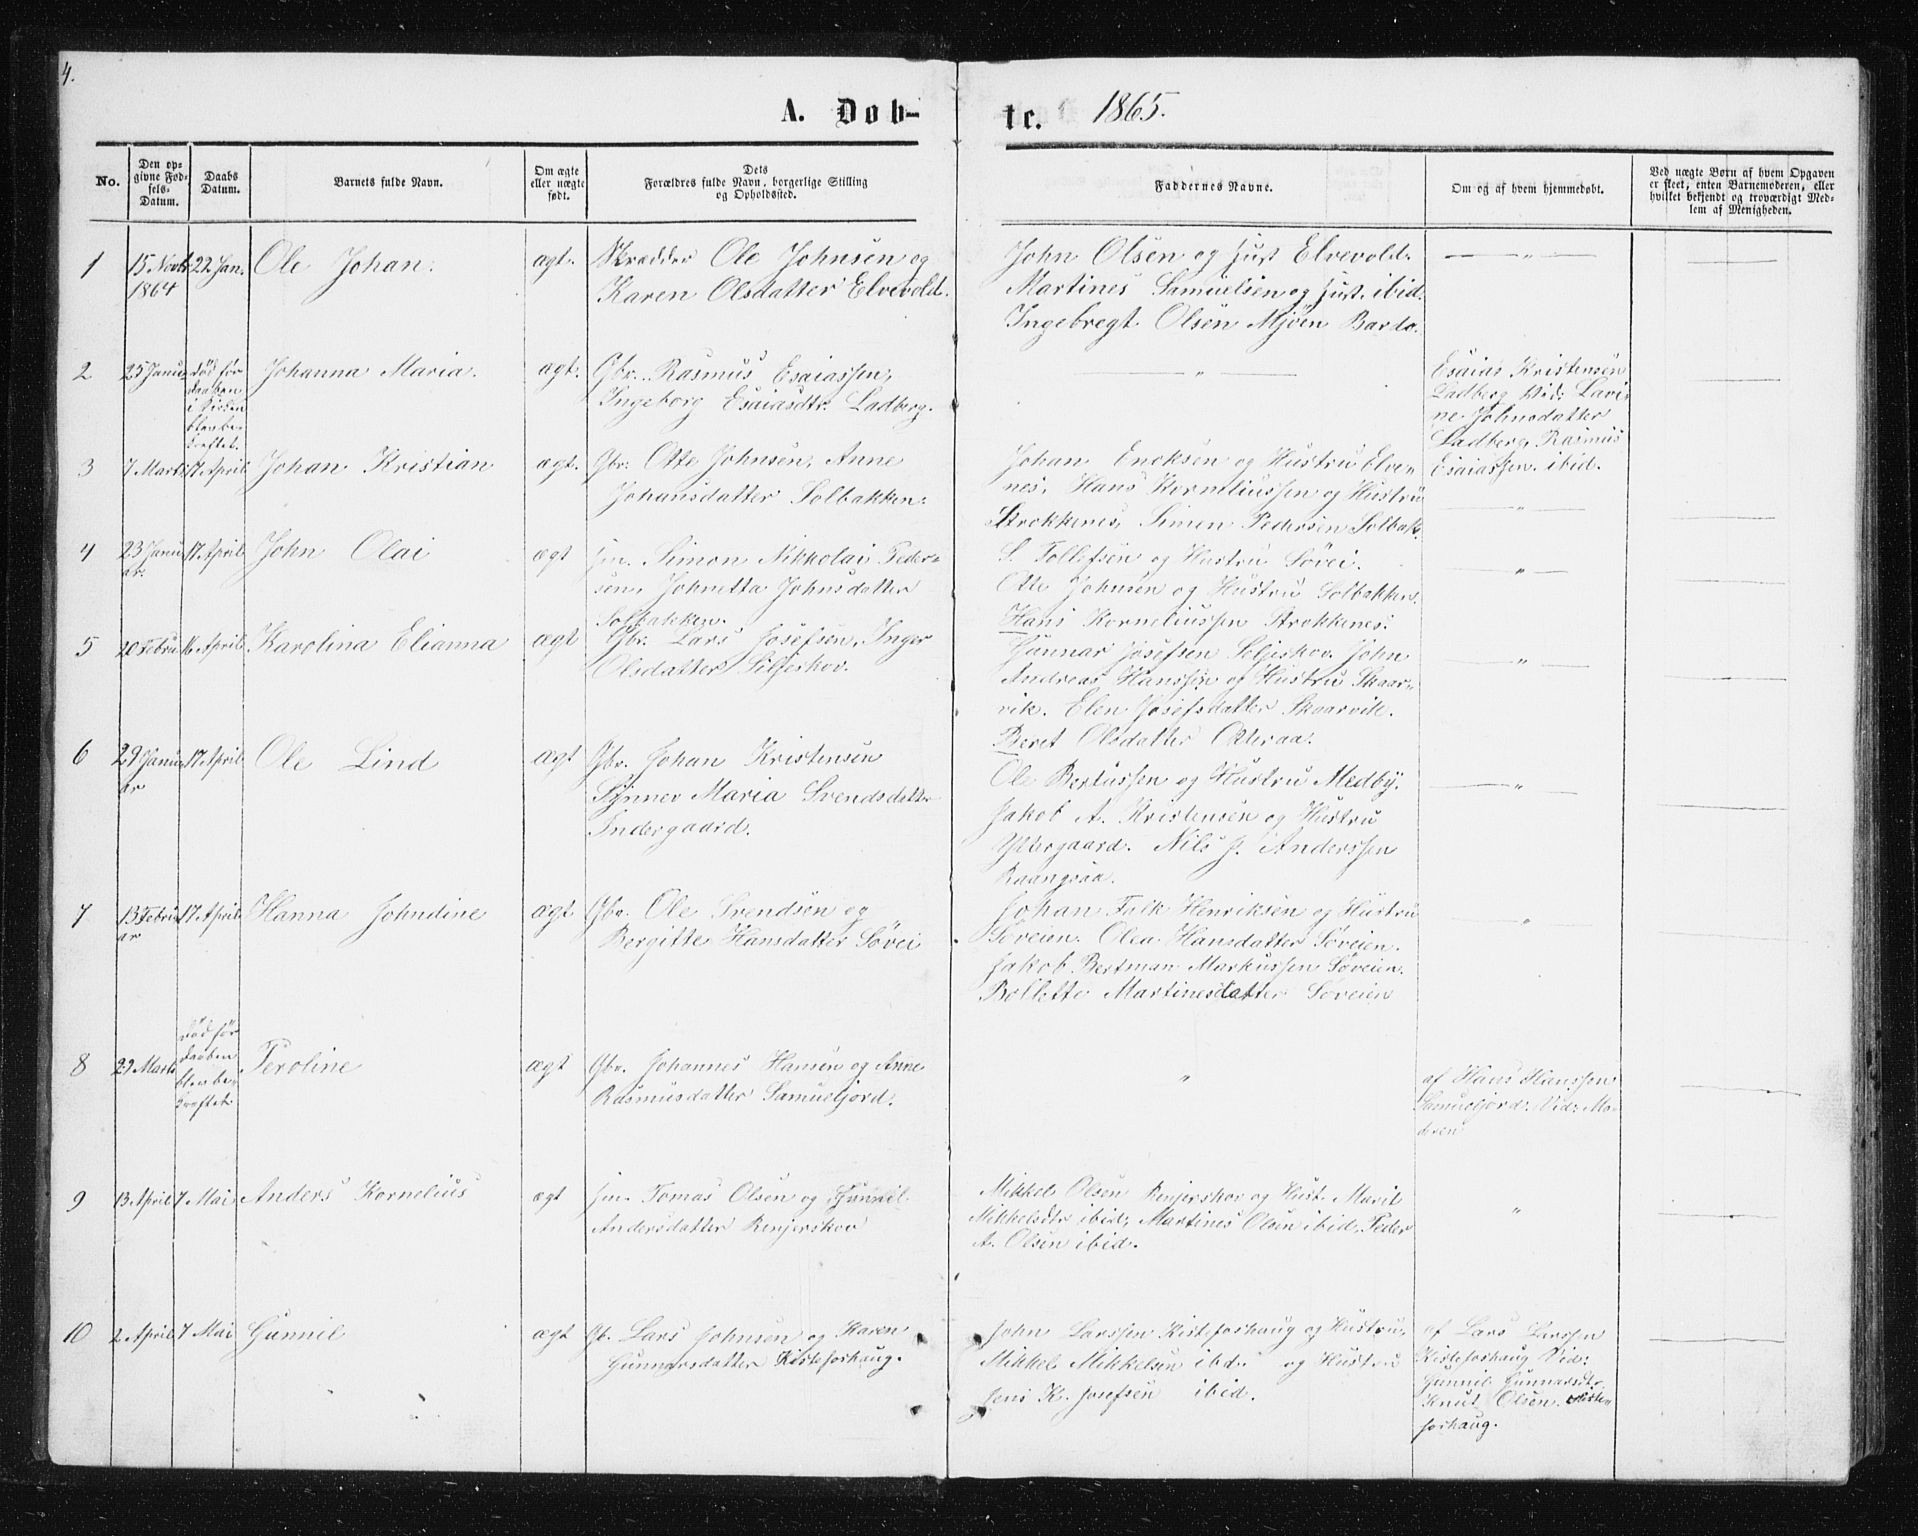 4.
A. Døb-
te. 1865.
No.
Den op-
givne Fød-
sels-
Datum.
Daabs
Datum.
Barnets fulde Navn.
Om ægte
eller uægte
født.
Dets
Forældres fulde Navn, borgerlige Stilling
og Opholdssted.
Faddernes Navne.
Om og af hvem hjemmedøbt.
Ved uægte Børn af hvem Opgaven
er skeet, enten Barnemoderen, eller
hvilket bekjendt og troværdigt Med-
lem af Menigheden.
1
15 Novbr
1864
22 Jan.
Ole Johan.
ægt.
Skrædder Ole Johnsen og
Karen Olsdatter Elvevold.
John Olsen og Hust Elvevold.
Martines Samuelsen og Hust. ibid.
Ingebregt Olsen Mjøen Bardo.
2
25 Janu
død før
Daaben
i Kirken
blev be-
kræftet.
Johanna Maria.
ægt.
Gbr. Rasmus Esaiassen,
Ingeborg Esaiasdtr. Ladberg.
Esaias Kristensen
Ladberg Vid: Lavi-
ne Johnsdatter
Ladberg, Rasmus
Esaiassen. ibid.
3
7 Marts
17 April
Johan Kristian
ægt.
Gbr: Otte Johnsen, Anne
Johansdatter Solbakken.
Johan Enoksen og Hustru Elve-
nes, Hans Korneliussen og Hustru
Strokkenes, Simen Pedersen Solbak.
4
23 Janu
ar.
17 April
John Olai
ægt
Simon Nikkolai Peder-
sen, Johnetta Johnsdatter
Solbakken.
S. Tollefsen og Hustru Søvei.
Otte Johnsen og Hustru Solbakken.
Hans Korneliussen Strokkenes.
5
20 Febru
16 April
Karolina Elianna
ægt
Gbr. Lars Josefsen, Inger
Olsdatter Siljeskov.
Gunnar Josefsen Seljeskov. John
Andreas Hanssen og Hustru Skaar-
vik. Elen Josefsdatter Skaarvik.
Beret Olsdatter Otteraa.
6
29 Janu
ar
17 April
Ole Lind
ægt
Gbr. Johan Kristensen
Synnev Maria Svendsdatter
Indergaard.
Ole Bertussen og Hustru Medby.
Jakob A. Kristensen og Hustru
Yttergaard. Nils J. Anderssen
7
13 Febru
ar
17 April
Hanna Johndine
ægt
Gbr. Ole Svendsen og
Bergitte Hansdatter Søvei
Johan Falk Henriksen og Hustru
Søveien. Olea Hansdatter Søveien.
Jakob Bertman Markussen Søveien.
Bollette Martinesdatter Søveien
8
29 Marts
Død før
Daaben
blev be-
kræftet.
Peroline
ægt
Gbr. Johannes Hansen og Anne
Rasmusdatter Samueljord.
"
af Hans Hanssen
Samueljord: Vid: Mo-
deren
9
13 April
7 Mai
Anders Kornelius
ægt
Tomas Olsen og Gunnil
Andersdatter Renjerskov
Mikkel Olsen Renjerskov og Hust. Marit
Mikkelsdtr ibid, Martines Olsen ibid, Peder
A. Olsen ibid.
"
10
2 April
7 Mai
Gunnil
ægt
Gb. Lars Johnsen og Karen
Gunnarsdatter Kisteforhaug.
John Larssen Kisteforhaug og Hustru,
Mikkel Mikkelsen ibd. og Hustru
Jens K. Josefsen ibid.
af Lars Larssen
Kisteforhaug Vid:
Gunnil Gunnarsdtr
Knut Olsen. Kiste-
forhaug.